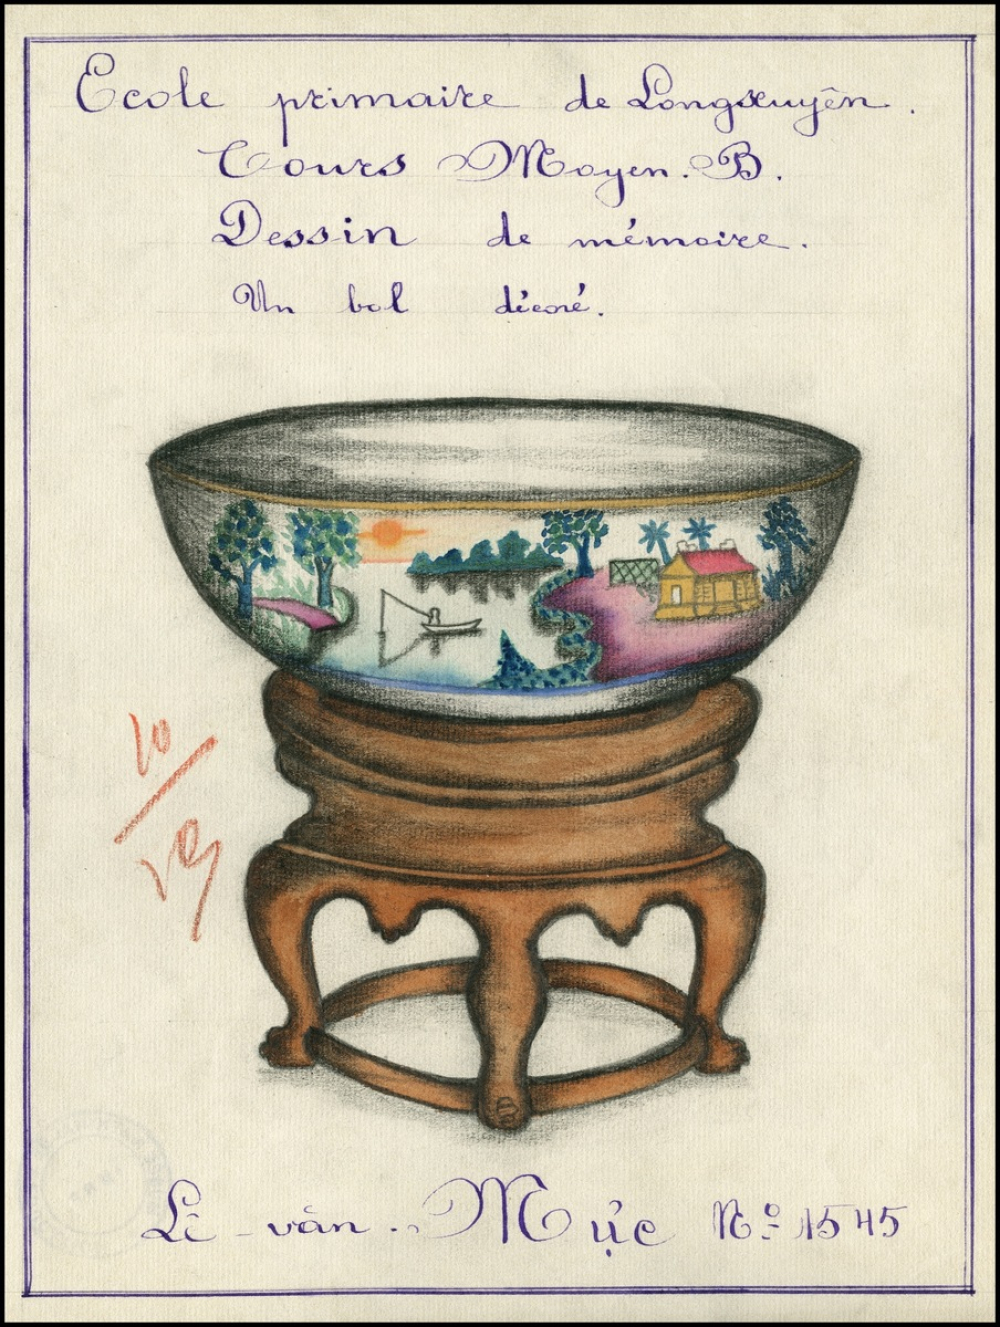 Ecole primaire de Longxuyên.
Cours Moyen. B.
Dessin de mémoire.
Un bol décoré.
10
Lê-văn-Mực No 1545